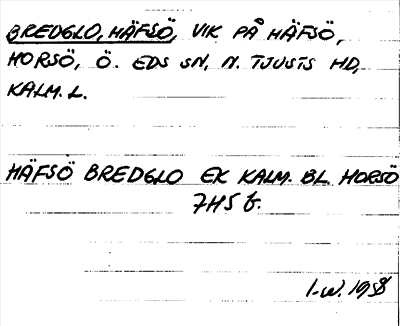 BREDGLO, HÄFSÖ, VIK PÅ HÄFSÖ,
HORSÖ, Ö. EDS SN, N. TJUSTS HD,
KALM. L.
HÄFSÖ BREDGLO EK KALM. BL HORSÖ
7H5 f.
I-W. 1958